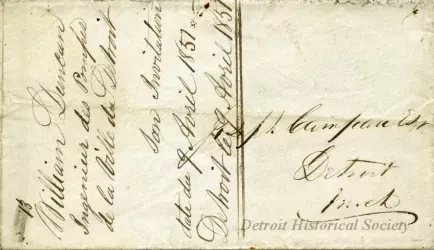 William Duncan
Ingenieur des Pompes
de la Ville du Detroit
son Invitation
date du 9 Avril 1851
Detroit le 9 Avril 1851
Jos. Campau Esr
Detroit
Mich
Detroit Historical Society